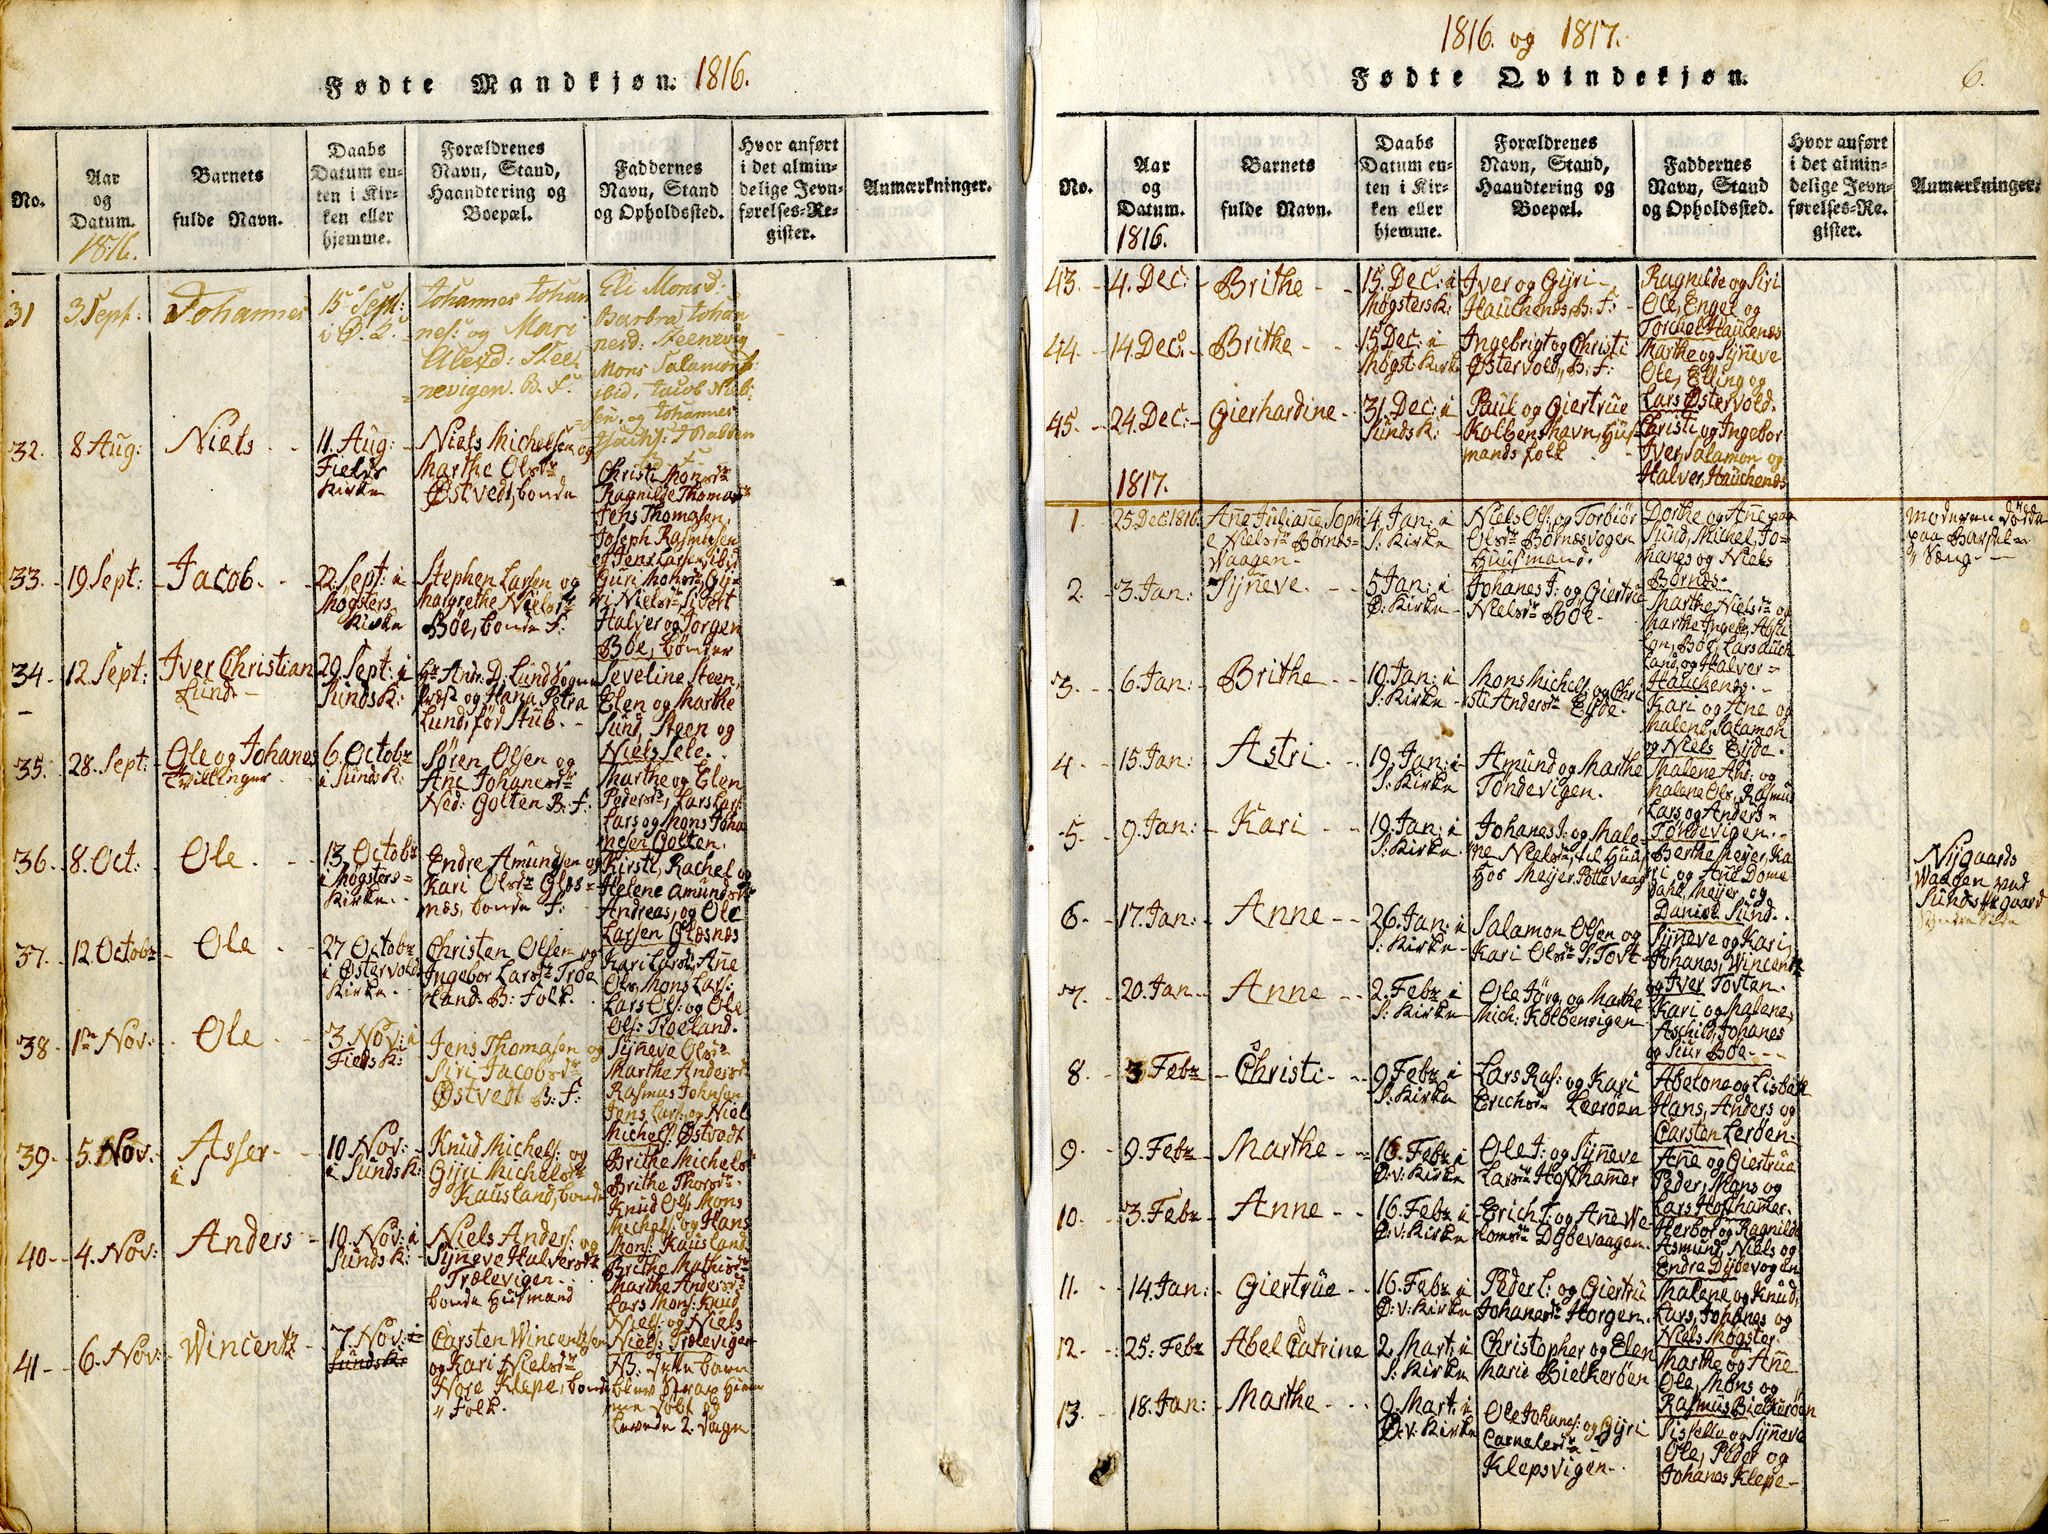 Fødte Mandkjøn. 1816.
No.
Aar
og
Datum.
1816.
Barnets
fulde Navn.
Daabs
Datum en-
ten i Kir-
ken eller
hjemme.
Forældrenes
Navn, Stand,
Haandtering og
Boepæl.
Faddernes
Navn, Stand
og Opholdssted.
Hvor anført
i det almin-
delige Jevn-
førelses-Re-
gister.
Anmærkninger.
31
3 Sept.
Johannes
15 Sept:
i Ø. K.
Johannes Johan
nes: og Mari
Steen
nevigen. B. F.
Eli Monsd:
Barbra Johan
nesd: Steenevig
Mons Salamons:
ibid, Jacob Niel:
sen, og Johannes
32.
8 Aug:
Niels
11. Aug:
Fields
Kirke
Niels Michelsen og
Marthe Olsdr
Østvedt, bonde
Christi Monsdr
Ragnilde Thomasdr
Jens Thomasen,
Joseph Rasmusen
og Jens Larsen ibid
33.
19 Sept:
Jacob.
22. Sept: i
Møgsters
Kirke
Stephen Larsen og
Margrethe Nielsdr
Böe, bonde F:
Guri Monsdr, Gy-
ri Nielsdr Sivert
Halver og Jørgen
Böe, bønder
34
12. Sept:
Iver Christian
Lund.
29. Sept: i
Sunds K:
Hr Andr. D. Lund Sogne
Præst og Hana Petra
Lund, fød Stub.
Seveline Steen,
Elen og Marthe
Sund, Steen og
Niels Sele.
35.
28. Sept:
Ole og Johanes
Tvillinger
6. Octobr
i Sunds K:
Søren Olsen og
Ane Johanesdr
Ned: Golten B: F:
Marthe og Elen
Pedersdr, Lars Lars:
Lars og Mons Joha
nesen Golten.
36.
8. Oct:
Ole.
13 Octobr
i Møgsters
Kirke.
Endre Amundsen og
Kari Olsdr Glæs-
næs, bonde F:
Kirsti, Rachel og
Helene Amundsdr
Andreas, og Ole
Larsen Glæsnæs
37.
12. Octobr
Ole
27 Octobr
i Østervold
Kirke.
Christen Olsen og
Ingebor Larsdr Troe
land. B: Folk.
Kari Larsdr, Ane
Ols, Mons Lars:
Lars Ols: og Ole
Ols: Troeland.
38
1ste Nov:
Ole
3 Nov: i
Fields K:
Jens Thomasen og
Siri Jacobsdr
Østvedt B: F:
Syneve Olsdr
Marthe Andersdr
Rasmus Johnsen
Jens Lars: og Niels
Michels: Østvedt
39
5. Nov:
Asser
10. Nov:
i Sunds K:
Knud Michels: og
Gyri Michelsdr
Kausland, bonde
Brithe Michelsdr
Brithe Thorsdr.
Knud Ols: Mons
Michels: og Hans
Mons: Kausland
40
4. Nov:
Anders
10. Nov: i
Sunds K:
Niels Anders: og
Syneve Halversdr
Trælevigen.
bonde Husmand
Brithe Mathisdr
Marthe Andersdr
Lars Mons: Knud
Niels: og Niels
Niels: Trælevigen
41
6. Nov:
Wincentz
7. Nov: i
Sunds K:
Carsten Wincentzsen
og Kari Nielsdr
Nore Klepe, bonde
Folk.
NB: dette barn
blev strax Hiem
me døbt og
levede 2. Dage
1816. og 1817.
Fødte Qvindekjøn.
6.
No.
Aar
og
Datum.
1816.
Barnets
fulde Navn.
Daabs
Datum en-
ten i Kir-
ken eller
hjemme.
Forældrenes
Navn, Stand,
Haandtering og
Boepæl.
Faddernes
Navn, Stand
og Opholdssted.
Hvor anført
i det almin-
delige Jevn-
førelses-Re-
gister.
Anmærkninger.
43.
4. Dec:
Brithe
15. Dec: i
Møgsters K:
Iver og Gyri
Hauchenæs. B: F:
Ragnilde og Siri
Ole, Engel og
Torchel Hauchenæs
44
14. Dec:
Brithe
15. Dec: i
Møgst: Kirke
Ingebrigt og Christi
Østervold, B: F:
Marthe og Syneve
Ole, Elling og
Lars Østervold.
45.
24. Dec:
Gierhardine
31. Dec: i
Sunds K:
Paul og Giertrue
Kolbenshavn, Hus-
mands folk
Christi og Ingebor
Iver, Salamon og
Halver, Hauchenæs
1817.
1.
25. Dec: 1816.
Ane Juliane Soph
e Nielsdr Børnes-
Vaagen.
4 Jan: i
S: Kirke
Niels Ols: og Torbiör
Olsdr Börnesvogen
Huusmand.
Dorthe og Ane paa
Sund, Michel, Jo-
hanes og Niels
Börnes.
Moderen døde
paa Barsel-
Seng.
2.
3. Jan:
Syneve.
5 Jan: i
Ø: Kirke
Johanes I: og Giertrue
Nielsdr Böe.
Marthe Nielsdr og
Marthe Ingebr, Absa
lon, Böe, Lars Auch
land, og Halver
Hauchenæs.
3.
6. Jan:
Brithe
19. Jan: i
S: Kirke
Mons Michels: og Chri
sti Andersdr Eyde.
Kari og Ane og
Malene, Salamon
og Niels Eyde.
4.
15. Jan:
Astri
19. Jan: i
S: Kirke
Amund og Marthe
Töndevigen.
Malene And: og
Malene Ols, Rasmus
Lars og Anders
Töndevigen.
5.
9. Jan:
Kari
19. Jan: i
S: Kirke
Johanes I: og Male-
ne Nielsdr, til Huus
hos Meyer, Pottevaag
Berthe Meyer, Ka
ri og Ane Dome
dahl, Meyer, og
Daniel Sund.
Nygaards
Waagen ved
Sunds
6.
17. Jan:
Anne
26. Jan: i
S: Kirke
Salamon Olsen og
Kari Olsdr S: Toft
Syneve og Kari,
Johanes, Wincentz
og Iver Toften.
7.
20. Jan
Anne
2. Febr i
S: Kirke
Ole Jörg. og Marthe
Mich: Kolbensvigen
Kari og Malene,
Aschild, Johanes
og Siur Böe.
8.
3 Febr
Christi
9. Febr i
S: Kirke
Lars Ras: og Kari
Erichsdr Leeröen
Abelone og Lisbeth
Hans, Anders og
Carsten Leröen.
9.
9. Febr
Marthe
16. Febr i
Ø: v: Kirke
Ole I: og Syneve
Larsdr Hofthamer
Ane og Giertrue
Peder, Mons og
Lars Hofthamer.
10.
3. Febr
Anne
16. Febr i
Ø: v: Kirke
Erich I: og Ane We-
lomsdr Dybevaagen.
Herbor og Ragnilde
Asmund, Niels og
Endre Dybevogen
11.
14. Jan:
Giertrüe
16. Febr i
Ø: v: Kirke
Peder L: og Giertrü
Johanesdr Horgen.
Malene og Knud,
Lars, Johanes og
Niels Møgster.
12.
25. Febr
Abel Catrine
2. Mart: i
S: Kirke
Christopher og Elen
Marie Bielkeröen
Marthe og Ane
Ole, Mons og
Rasmus Bielkeröen
13.
18. Jan:
Marthe
9. Mart: i
Ø: v: Kirke
Ole Johanes: og Gyri
Carnelesdr
Klepsvigen.
Sisselle og Syneve
Ole, Peder og
Johanes Klepe